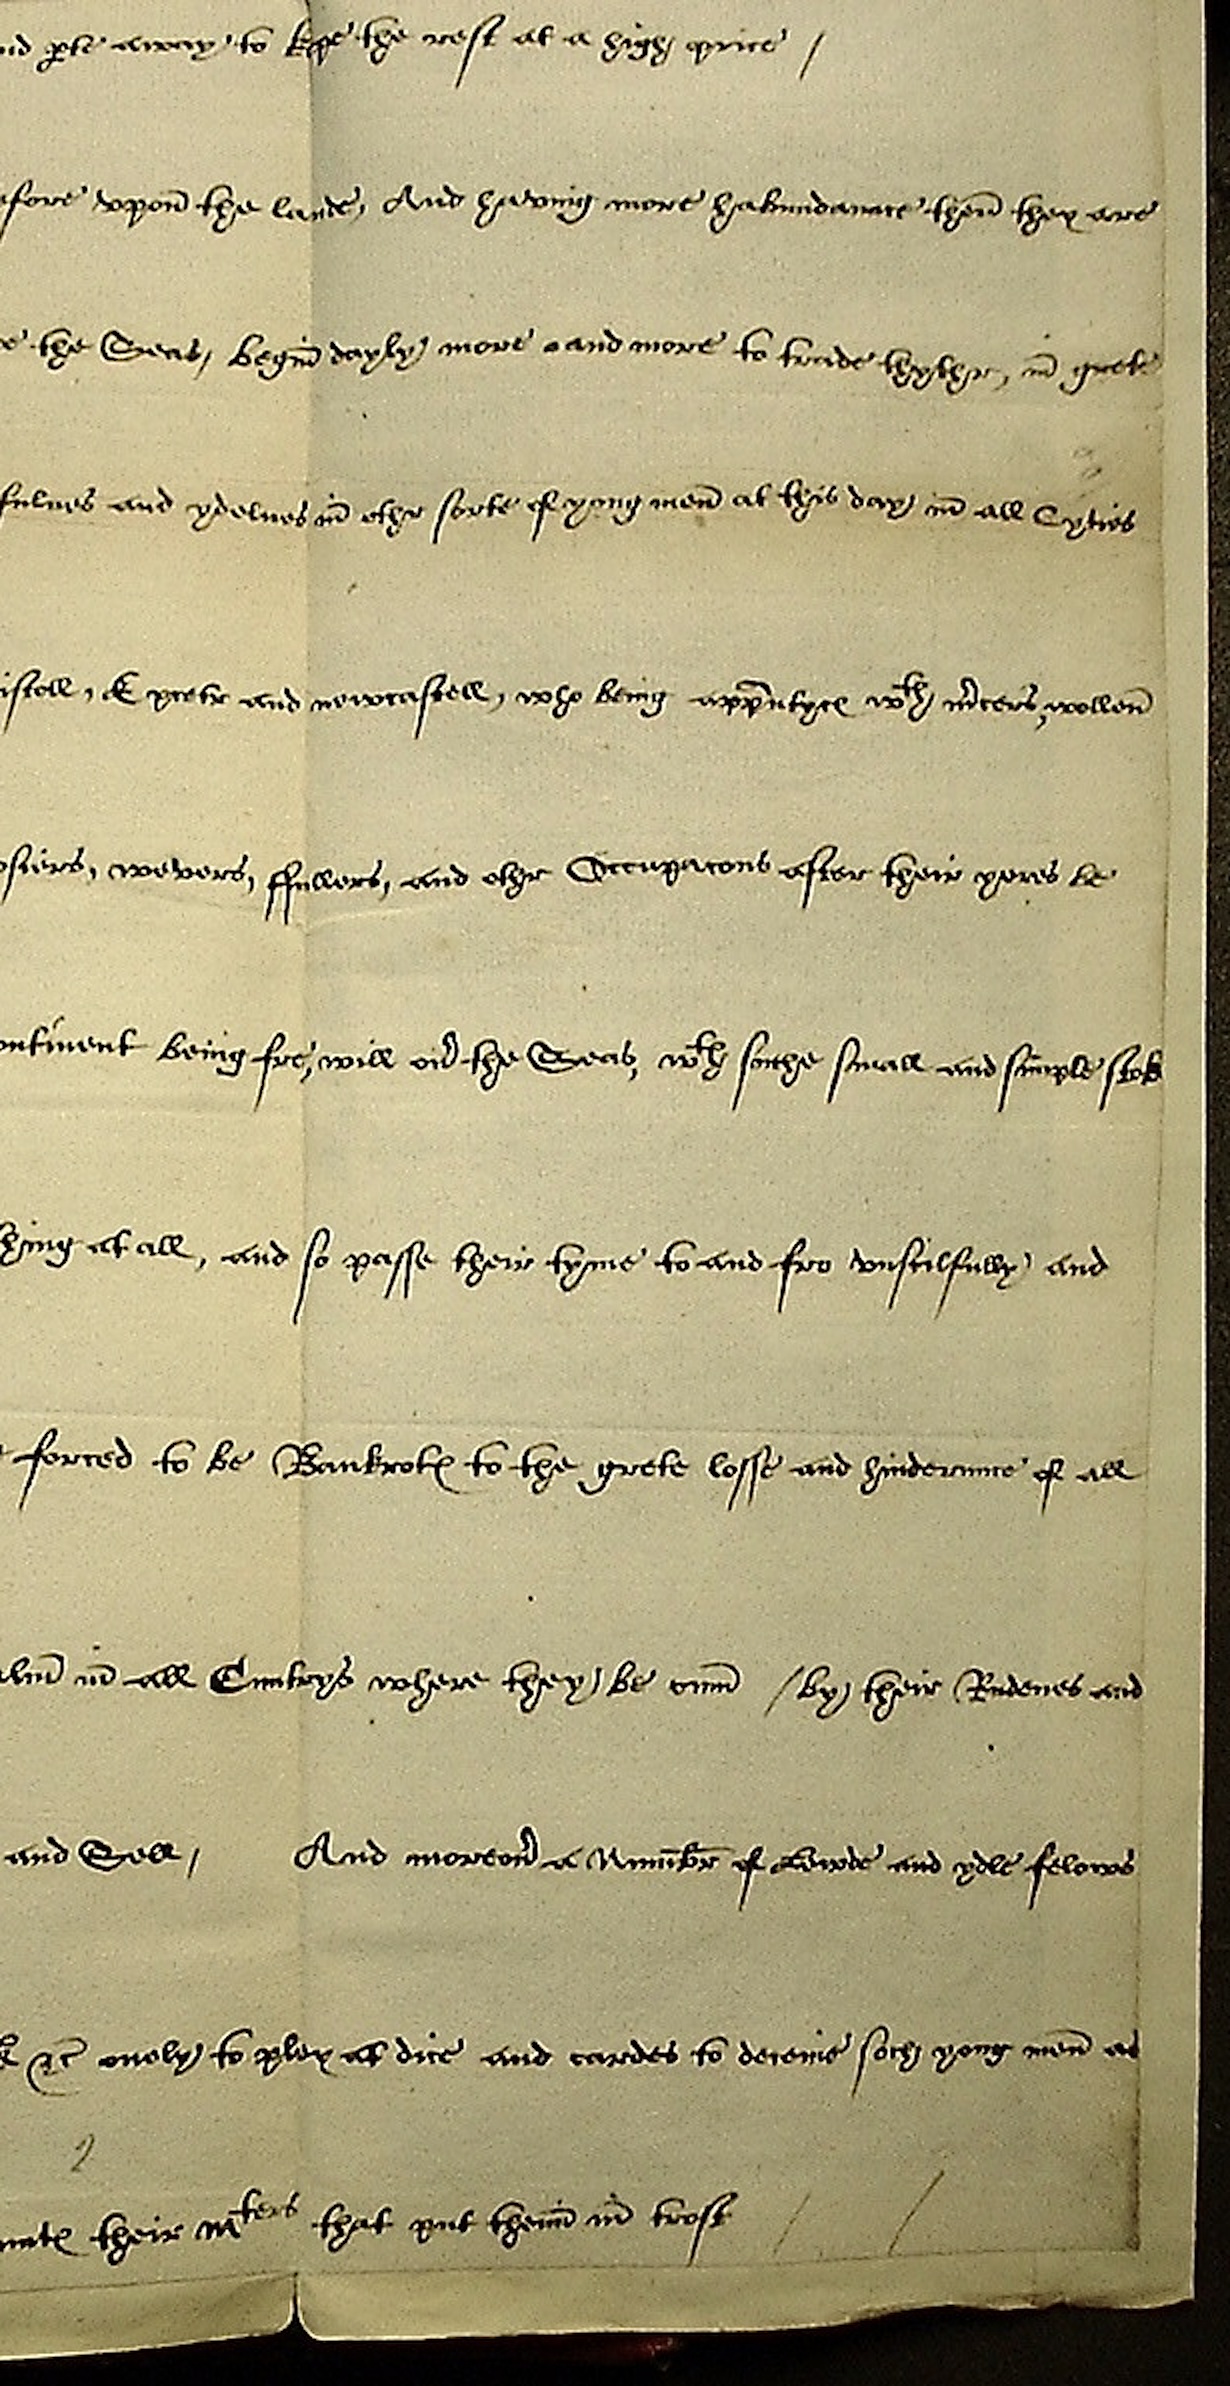 nd pte away to kepe the rest at a high price /
efore vpon the lande, And having more habundannce then they are
the Seas, begin dayly more and more to trade thyther, in grete
fulnes and ydelnes in other sorte of yong men at this day in all Cyties
istoll, Excetr and newcastell, who being appntyces wth mcers, wollen
osiers, wevers, ffullers, and othr Occupacons after their yeres be
ontment being fre, will ou the Seas, wth suche small and simple stok
hing at all, and so passe their tyme to and fro vnskilfully and
forced to be Bankrotes to the grete losse and hinderunce of all
elm in all Cuntrys where they be cum / by their Rudenes and
and Sell, And moreou a Numbr of Lewde and ydle felows
onely to pley at dice and cardes to deceive soch yong men as
their mters that put them in trost / /